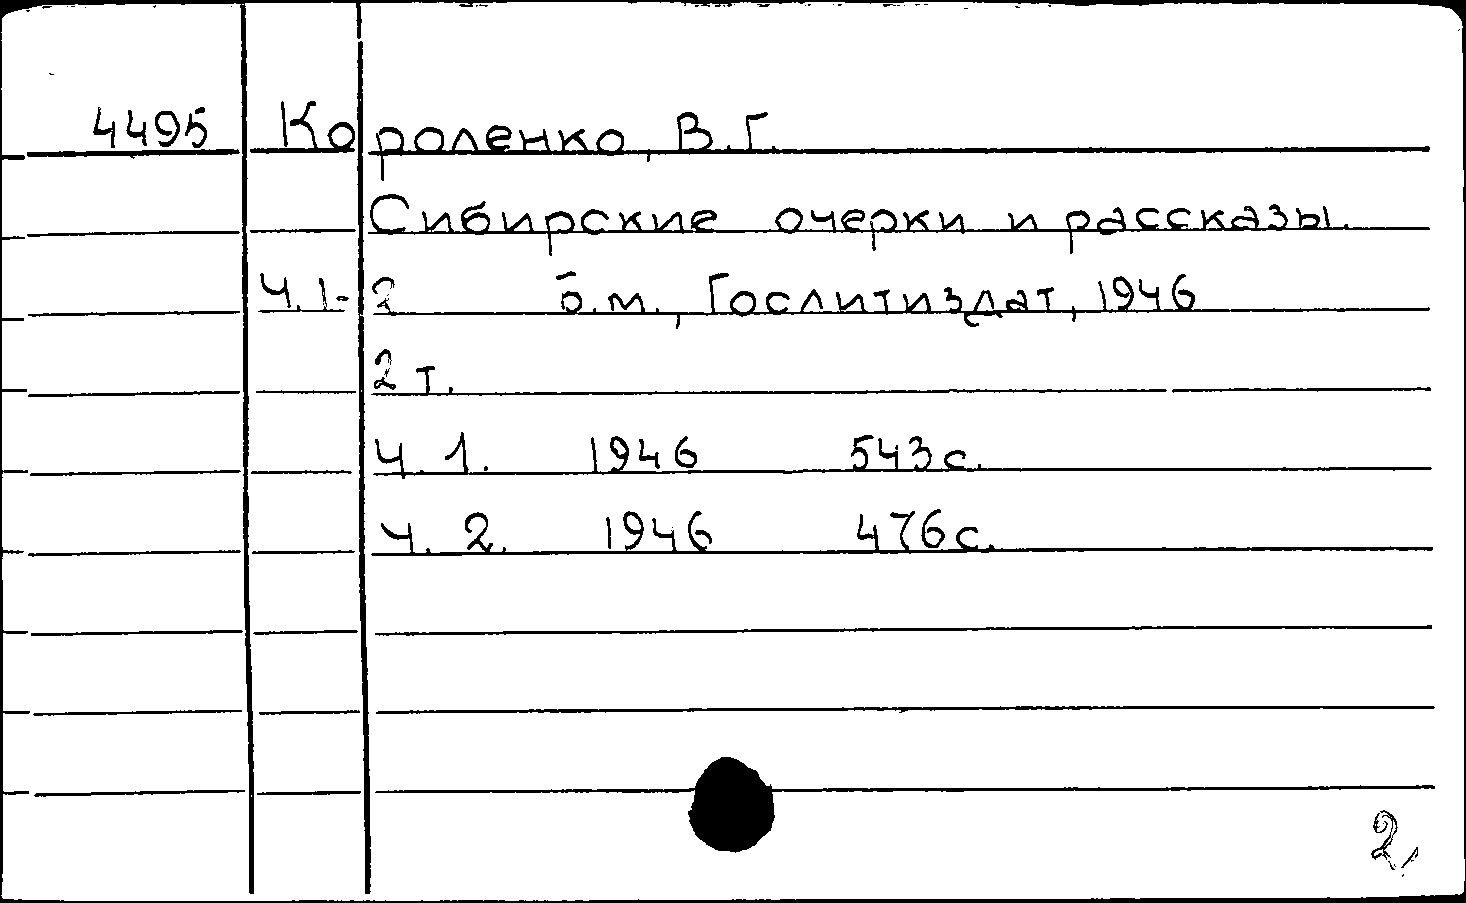 4495 Короленко, В.Г.
Сибирские очерки и рассказы.
Ч. 1-2 б.м., Гослитиздат, 1946
2 т.
Ч. 1. 1946 543 с.
Ч. 2. 1946 476 с.
2,